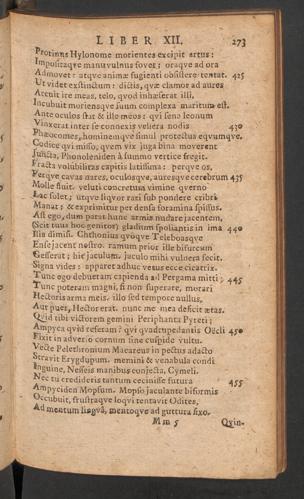 LIBER XII. 273
Protinus Hylonome morientes excipit artus:
Impositaqve manu vulnus fovet; oraqve ad ora
Admovet: atqve animæ fugienti obsistere tentat. 425
Ut videt exstinctum: dictis, qvæ clamor ad aures
Arcuit ire meas, telo, qvod inhæserat illi,
Incubuit moriensqve suum complexa maritum est.
Ante oculos stat & ille meos: qvi sena leonum
Vinxerat inter se connexis vellera nodis 430
Phæocomes, hominemqve simul protectus eqvumqve.
Codice qvi misso, qvem vix juga bina moverent
Juncta, Phonoleniden à summo vertice fregit.
Fracta volubilitas capitis latissima: perqve os,
Perqve cavas nares, oculosqve, auresqve cerebrum 435
Molle fluit. veluti concretum vimine qverno
Lac solet; utqve liqvor rari sub pondere cribri
Manat; & exprimitur per densa foramina spissus.
Ast ego, dum parat hunc armis nudare jacentem,
(Scit tuus hoc genitor) gladium spoliantis in ima 440
Ilia dimisi. Chthonius qvoqve Teleboasqve
Ense jacent nostro. ramum prior ille bifurcum
Gesserat; hic jaculum. jaculo mihi vulnera fecit.
Signa vides: apparet adhuc vetus ecce cicatrix.
Tunc ego debueram capienda ad Pergama mitti; 445
Tunc poteram magni, si non superare, morari
Hectoris arma meis. illo sed tempore nullus,
Aut puer, Hector erat. nunc me mea deficit ætas.
Qvid tibi victorem gemini Periphanta Pyreti;
Ampyca qvid referam? qvi qvadrupedantis Oëcli 450
Fixit in adverso cornum sine cuspide vultu.
Vecte Pelethronium Macareus in pectus adacto
Stravit Erygdupum. memini & venabula condi
Inguine, Nesseis manibus conjecta, Cymeli.
Nec tu credideris tantum cecinisse futura 455
Ampyciden Mopsum. Mopso jaculante biformis
Occubuit, frustraqve loqvi tentavit Odites,
Ad mentum lingvâ, mentoqve ad guttura fixo.
Mm 5 Qvin-